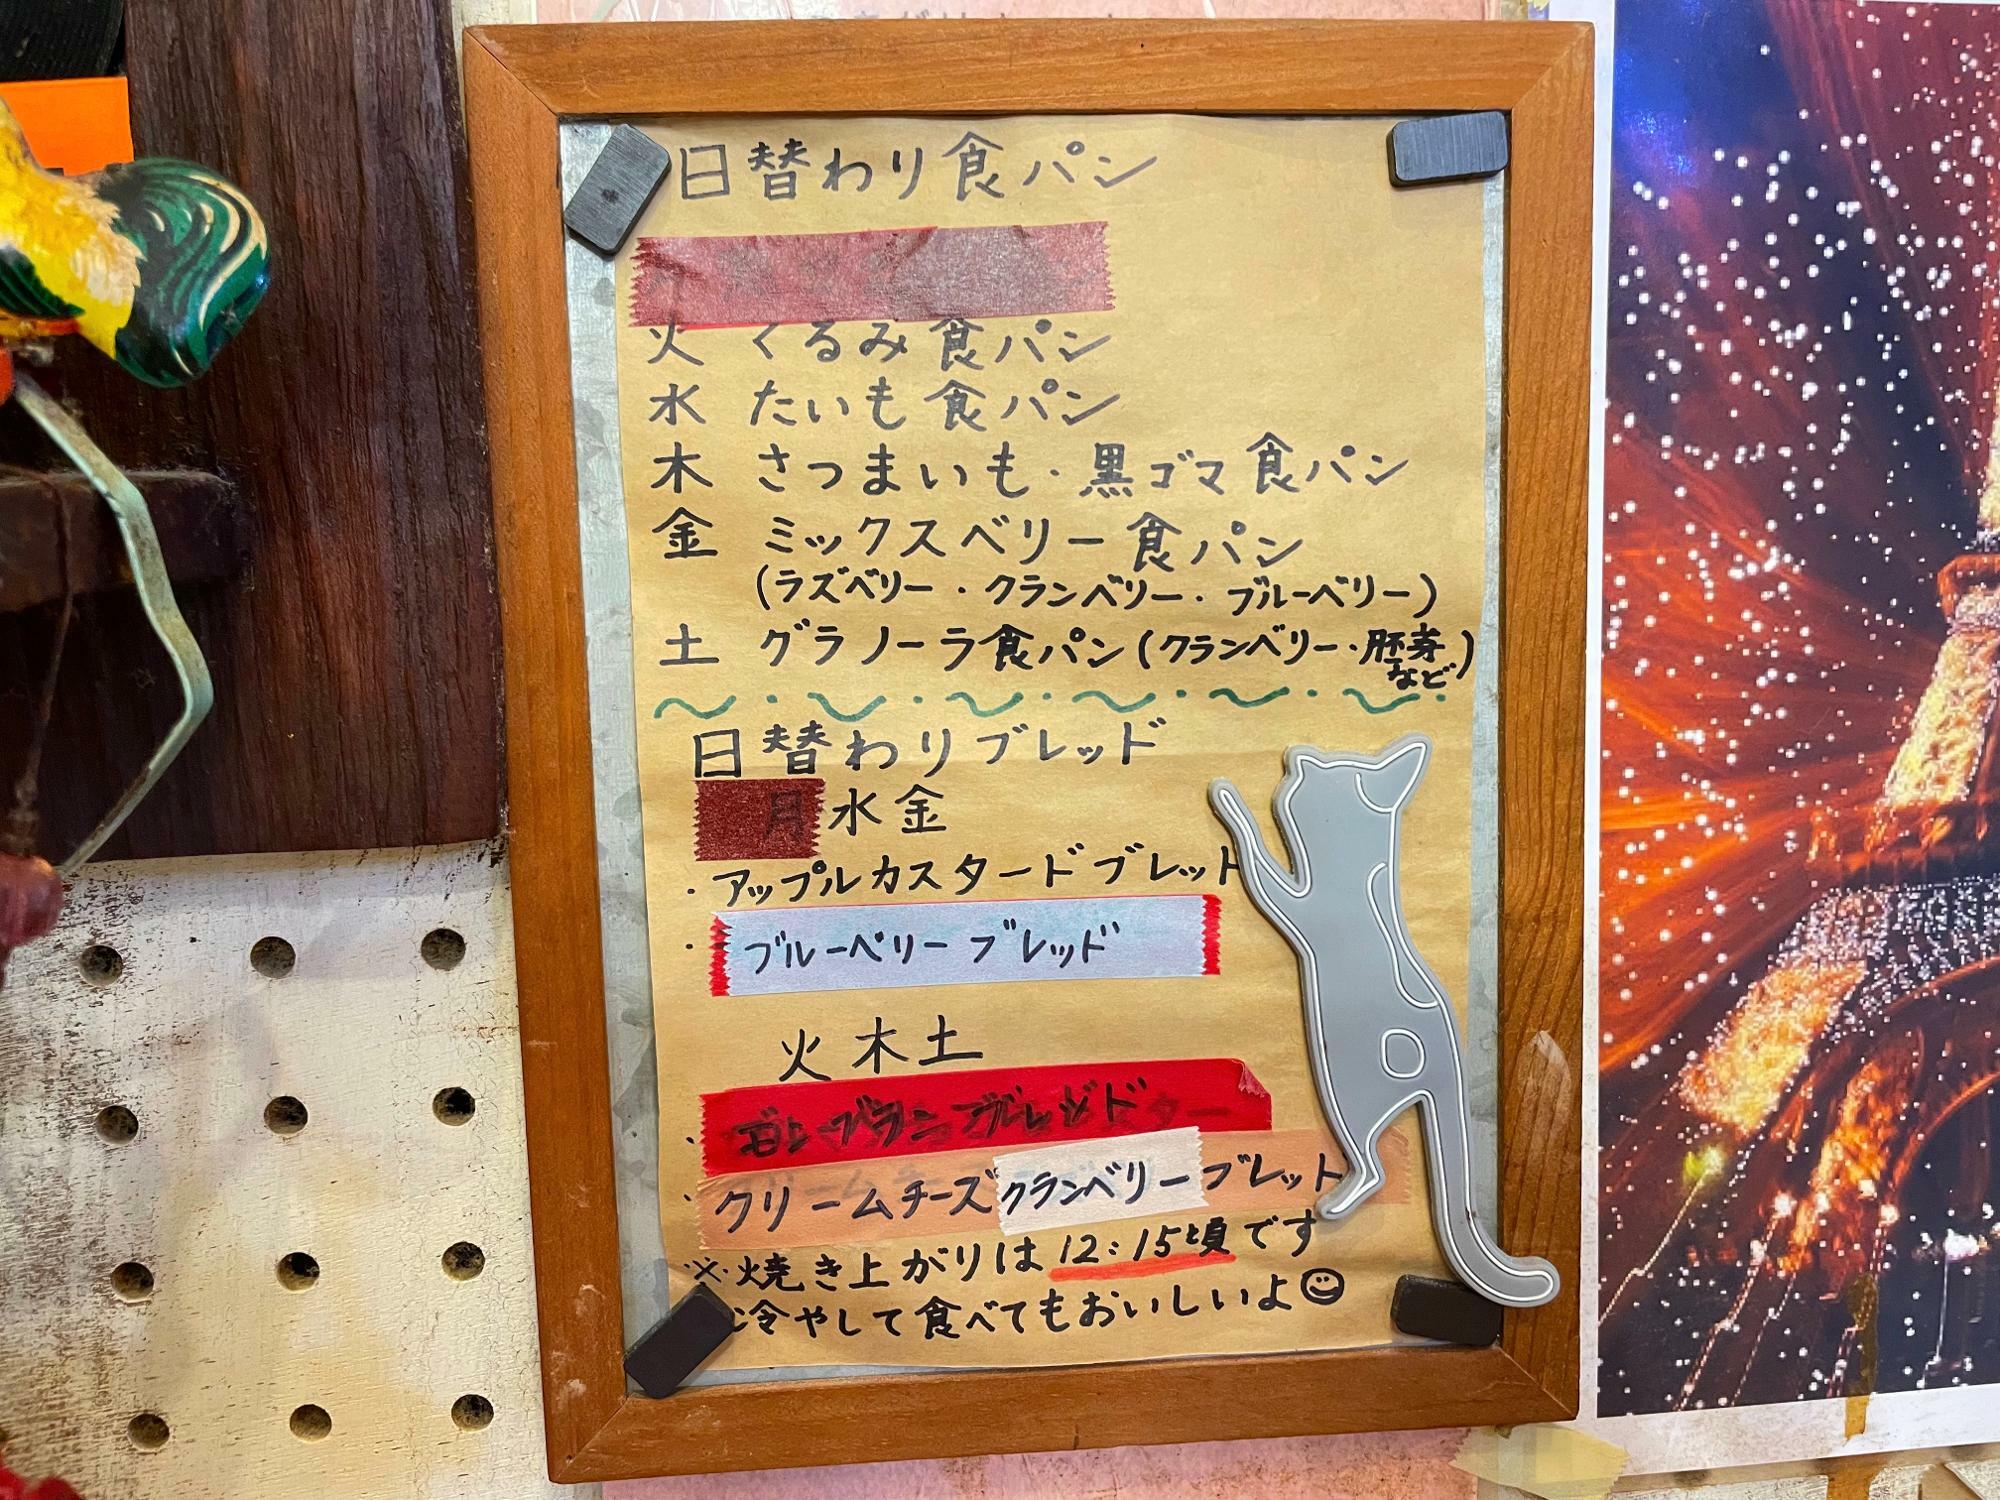 日替わり食パン
火 くるみ食パン
水 たいも食パン
木 さつまいも・黒ゴマ食パン
金 ミックスベリー食パン
(ラズベリー・クランベリー・ブルーベリー)
土 グラノーラ食パン(クランベリー・胚芽など)
日替わりブレッド
月水金
・アップルカスタードブレット
・ブルーベリーブレッド
火木土
・モンブランブレッド
・クリームチーズクランベリーブレット
※焼き上がりは12:15頃です
冷やして食べてもおいしいよ